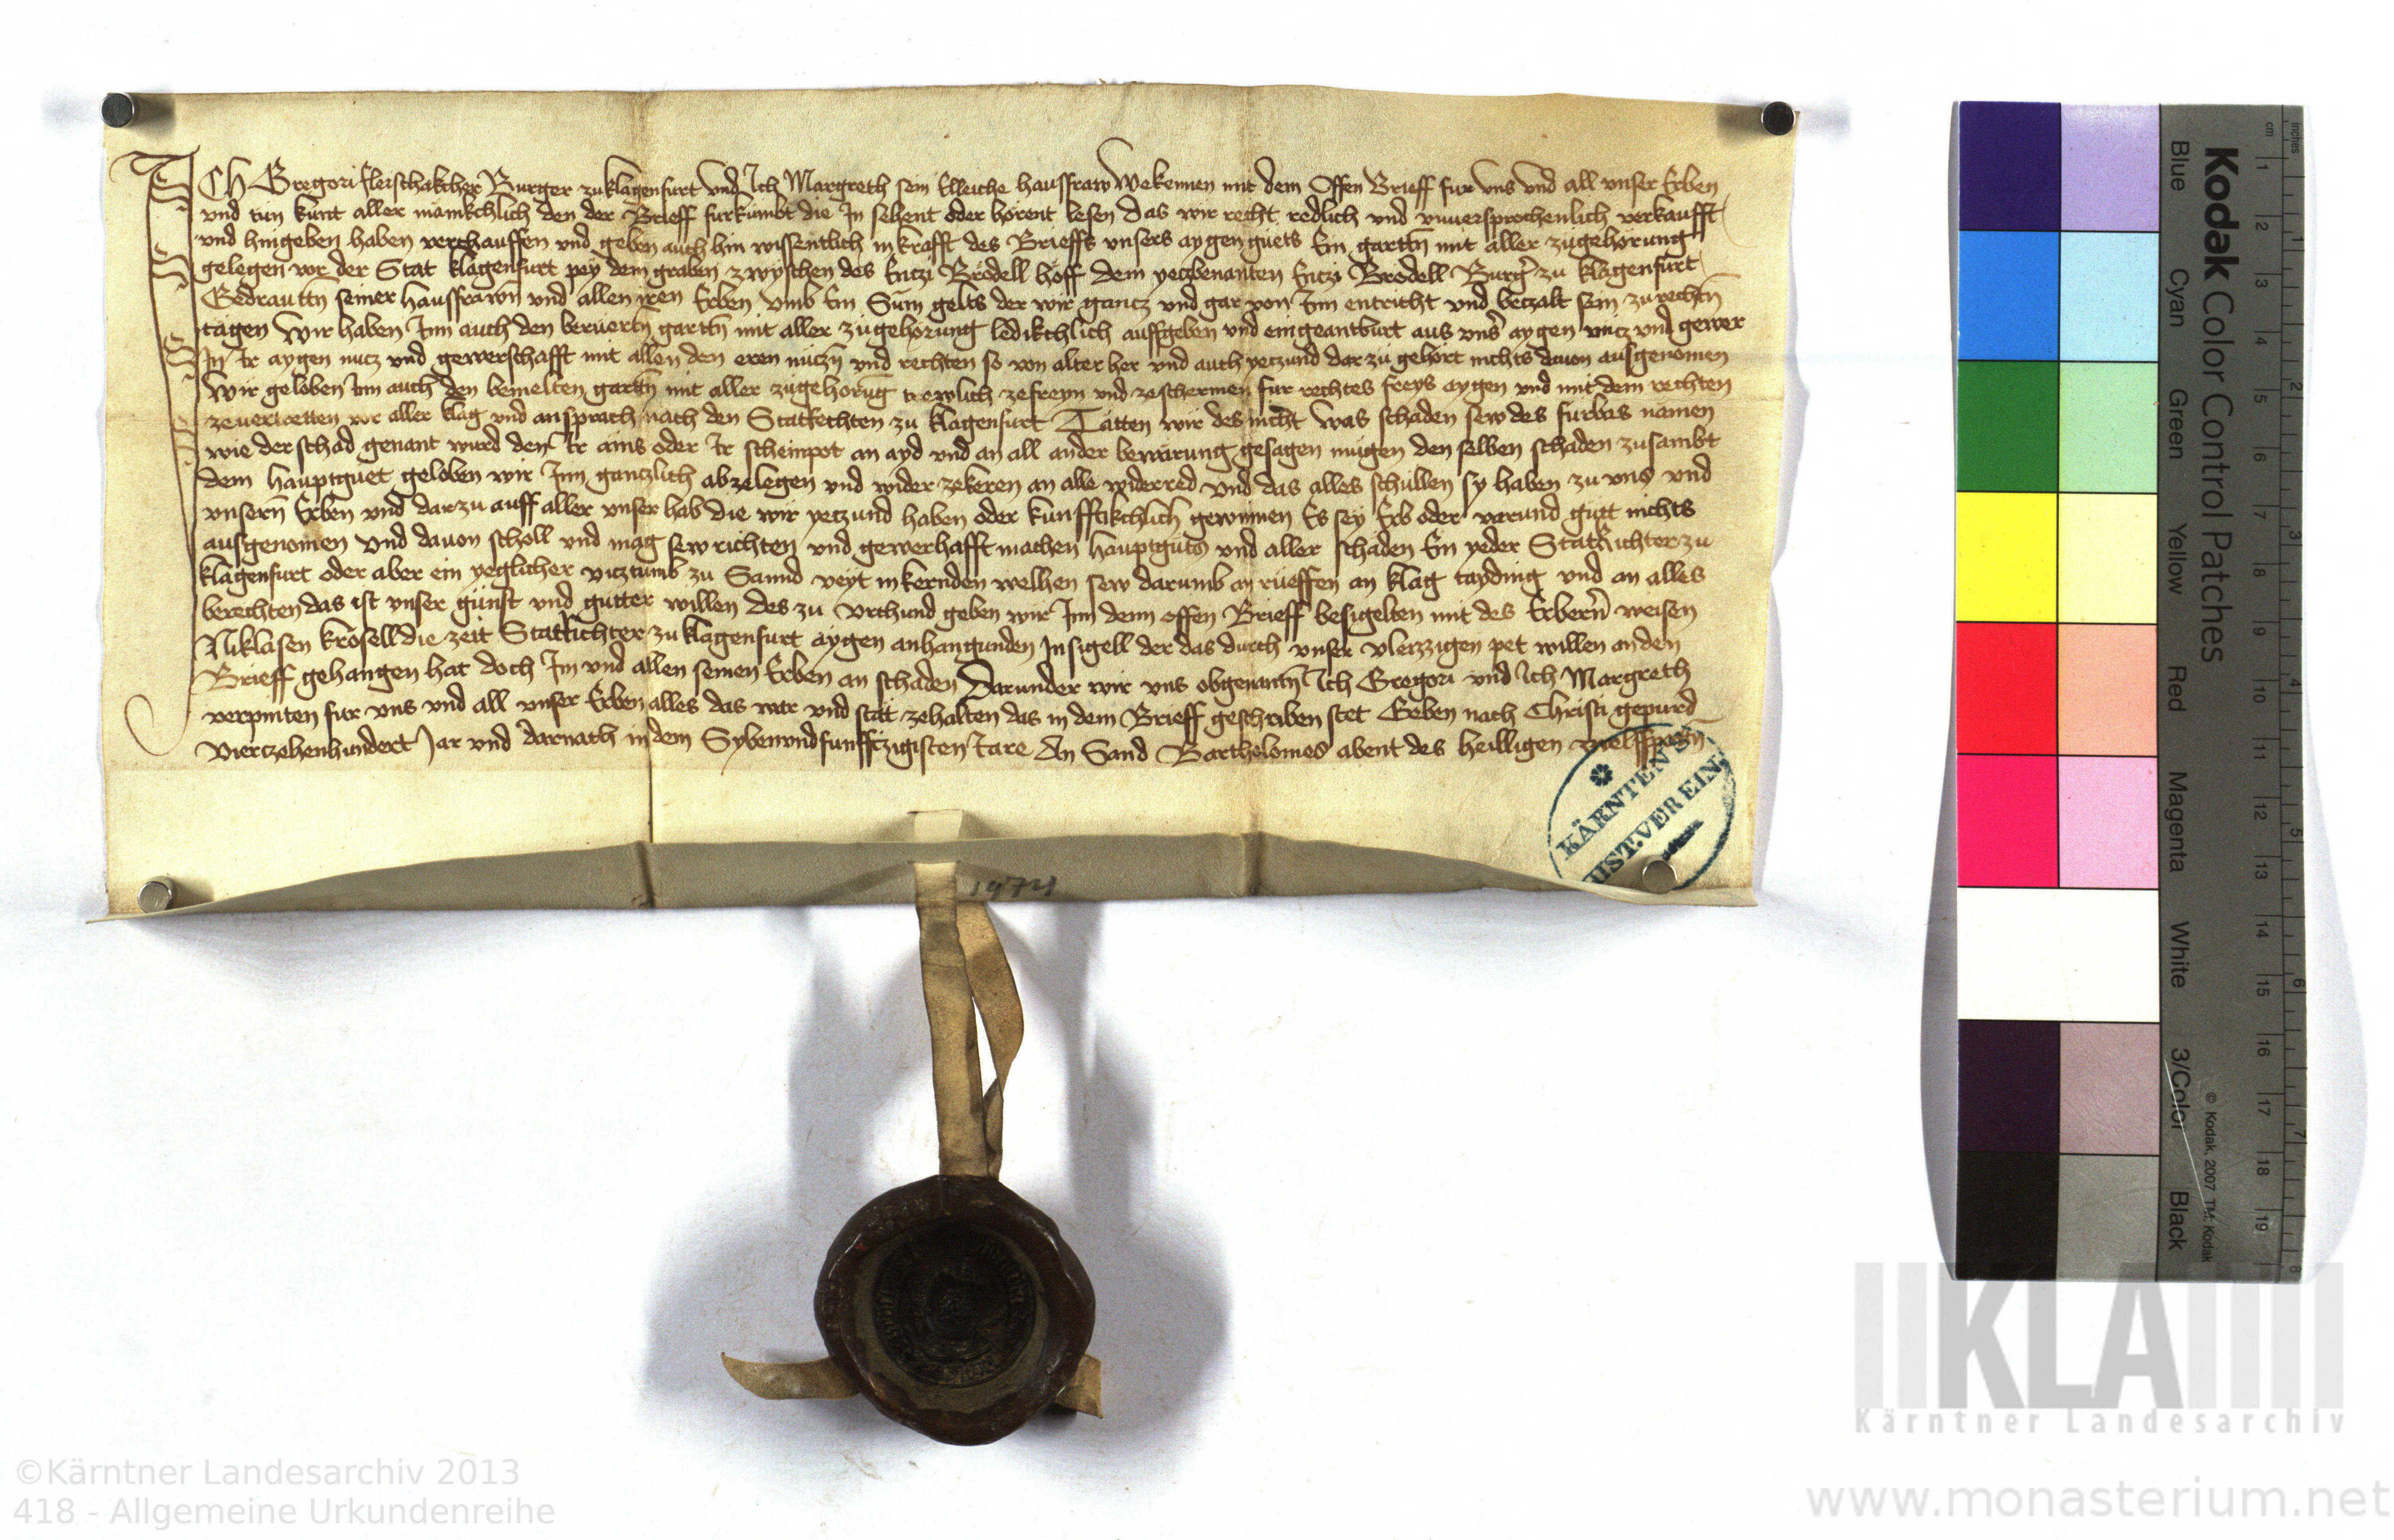 Ich Gregori fleischakcher Burger zu klagenfurt vnd Ich Margreth sein Eleiche hausfraw Wekennen mit dem Offen Brieff fur vns vnd all vnser Erben
vnd tun kunt aller mänikchlich den der Brieff furkumbt die In sehent oder hörent lesen das wir recht redlich vnd vnuersprochenlich verkaufft
vnd hingeben haben verchauffen vnd geben auch hin wissentlich in krafft des Brieffs vnsers aygen guets Ein gartn mit aller zugehorung
gelegen vor der Stat klagenfurt pey dem graben zwyschen des Enczi Brödell hoff dem yeczbenanten Enczi Brodell Burger zu klagenfurt
Gedrauttn seiner hausfrawn vnd allen iren Erben vmb Ein Sum gelts der wir gancz vnd gar von Inn entricht vnd beczalt sein zu rechtn
tagen Wir haben Inn auch den beruertn gartn mit aller zugehorung ledikchlich auffgeben vnd eingeantburt aus vns aygen nucz vnd gewer
In Ir aygen nucz vnd gewerschafft mit allen den eren nuczn vnd rechten so von alter her vnd auch yeczund dar zu gehort nichts dauon ausgenomen
Wir geloben Inn auch den bemelten gartn mit aller zugehorug trewlich zefreyn vnd zeschermen fur rechtes freys aygen vnd mit dem rechten
zeuertretten vor aller klag vnd ansprach nach den Statrechten zu klagenfurt Tätten wir des nicht was schaden sew des furbas nämen
wie der schad genant wurd den Ir ains oder Ir scheinpot an ayd vnd an all ander bewärung gesagen mugen den selben schaden zusambt
dem hauptguet geloben wir Inn ganczlich abzelegen vnd wider zekeren an alle widerred vnd das alles schullen sy haben zu vns vnd
vnsern Erben vnd darzu auff aller vnser hab die wir yeczund haben oder kunfftikchlich gewinnen Es sey Erb oder varund gut nichts
ausgenomen vnd dauon scholl vnd mag sew richten vnd gewerhafft machen hauptguts vnd aller schaden Ein yeder StatRichter zu
klagenfurt oder aber ein yeglicher vicztumb zu Sannd veyt in kernden welhen sew darumb an rueffen an klag tayding vnd an alles
berechten das ist vnser gunst vnd gutter willen des zu vrchund geben wir Inn denn offen Brieff besigelten mit des Erbern weisen
Niklasen krösell die zeit StatRichter zu klagenfurt aygen anhangunden Insigell der das durch vnser vleizzigen pet willen an den
Brieff gehangen hat doch Im vnd allen seinen Erben an schaden Darunder wir vns obgenantn Ich Gregori vnd Ich Margreth
verpinten fur vns vnd all vnser Erben alles das war vnd stät zehalten das in dem Brieff geschriben stet Geben nach Christi gepurd
vierczehenhundert Jar vnd darnach in dem Sybenvndfunffczigisten Jare An Sand Bartholomes abent des heilligen zwelfpotn
KÄRNTEN
HIST.VEREIN
Kodak Color Control Patches
Blue Cyan Green Yellow Red Magenta White 3/Color Black
© Kodak, 2007 TM: Kodak
inches cm
1 2 3 4 5 6 7 8 9 10 11 12 13 14 15 16 17 18 19
1 2 3 4 5 6 7 8
KLA
Kärntner Landesarchiv
©Kärntner Landesarchiv 2013
418 - Allgemeine Urkundenreihe
www.monasterium.net